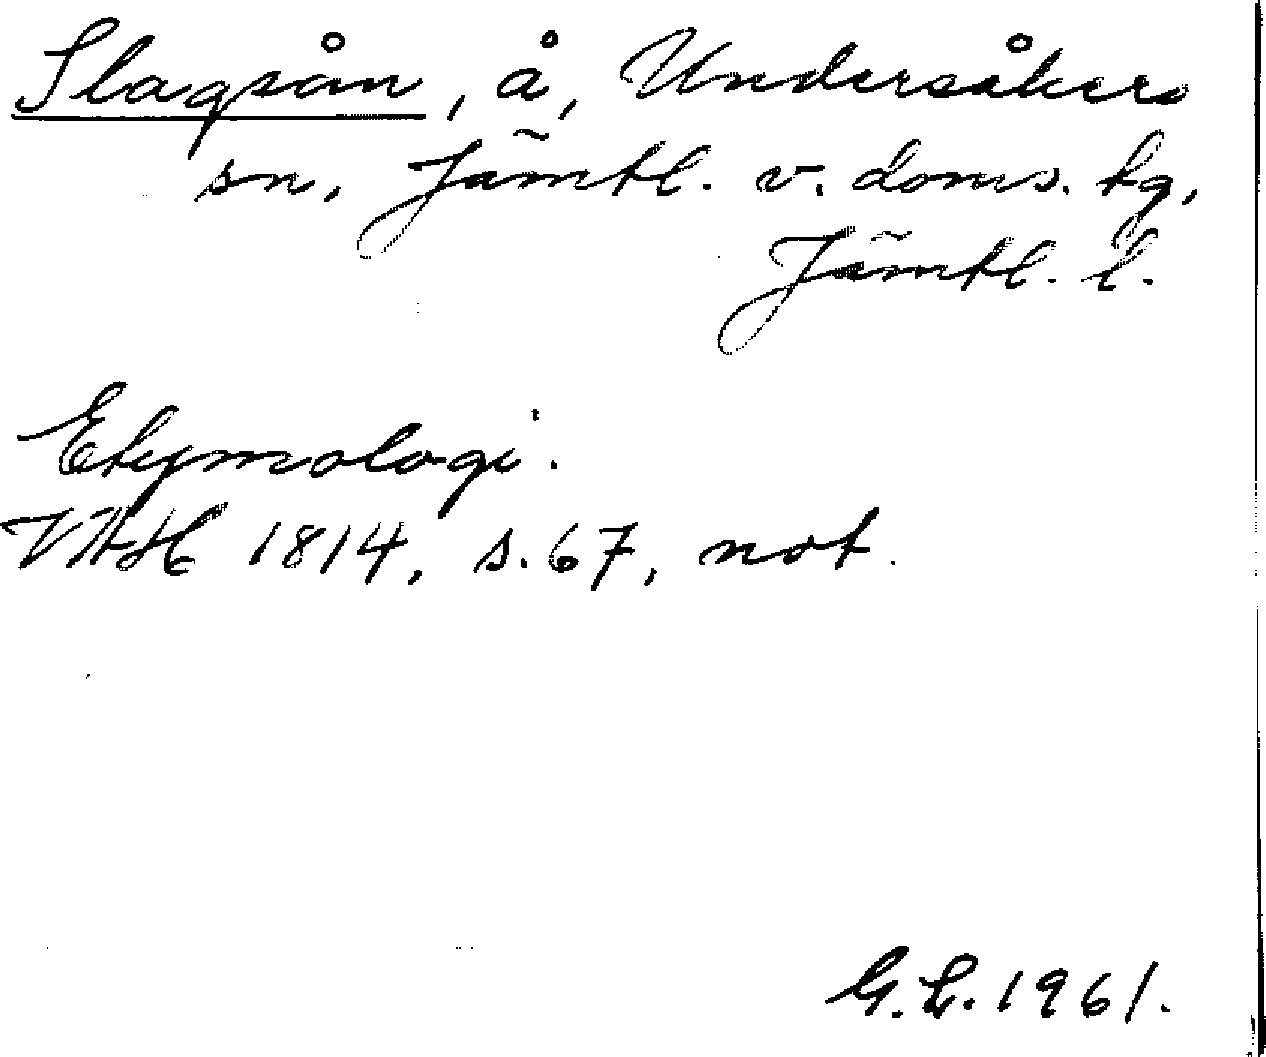 Slagsån, å, Undersåkers
sn, Jämtl. v. doms. tg,
Jämtl. l.
Etymologi.
VAH 1814, s. 67, not.
G. L. 1961.